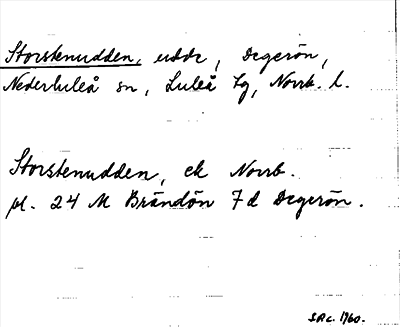 Storstenudden, udde, Degerön,
Nederluleå sn, Luleå tg, Norrb. l.
Storstenudden, ek Norrb.
pl. 24 M Brändön 7d Degerön.
SAC. 1960.